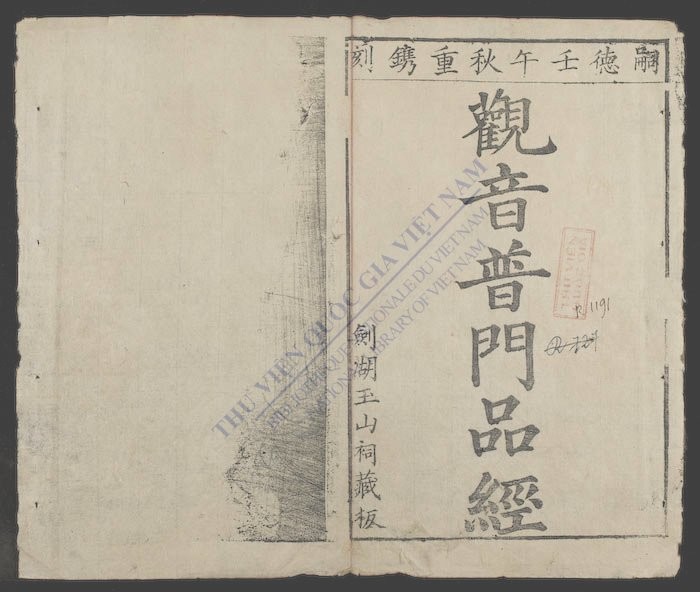 嗣德壬午秋重鐫刻
觀音普門品經
劍湖玉山祠藏板
THƯ VIỆN QUỐC GIA VIỆT NAM
BIBLIOTHEQUE NATIONALE DU VIETNAM
NATIONAL LIBRARY OF VIETNAM
R 1191